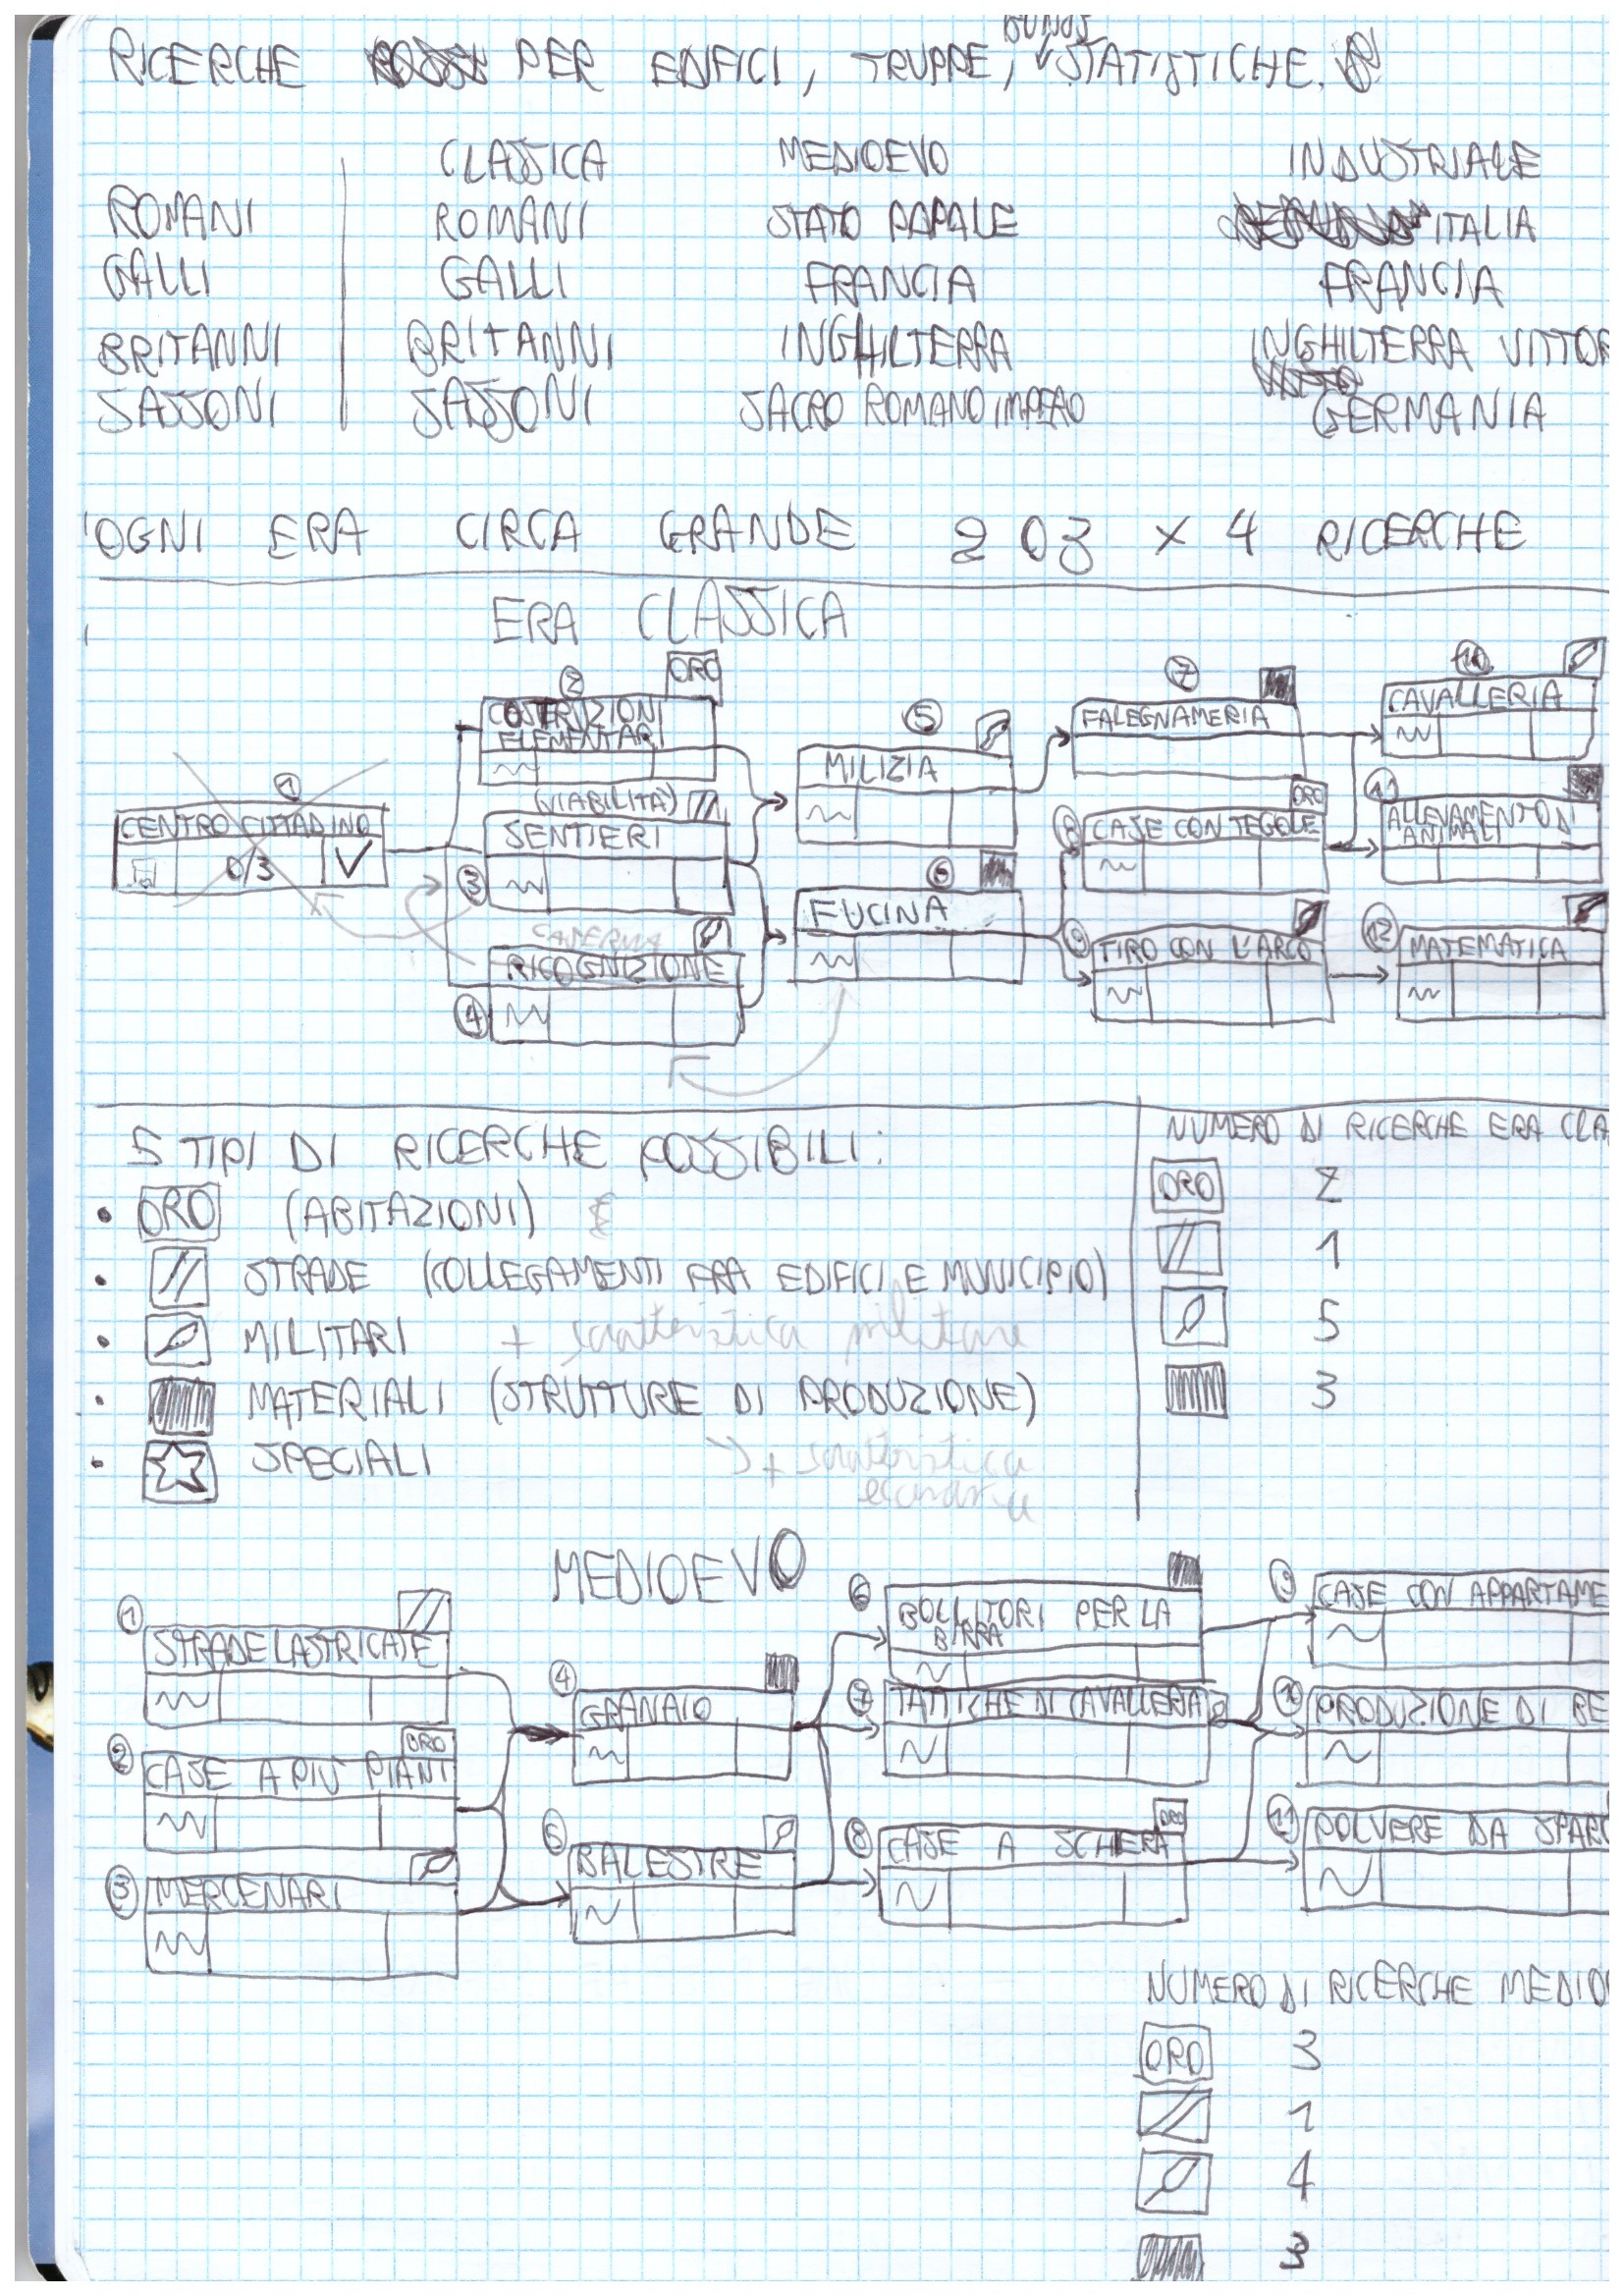 BONUS
RICERCHE PER EDIFICI, TRUPPE, STATISTICHE.
CLASSICA MEDIOEVO INDUSTRIALE
ROMANI ROMANI STATO PAPALE ITALIA
GALLI GALLI FRANCIA FRANCIA
BRITANNI BRITANNI INGHILTERRA INGHILTERRA VITTOR
SASSONI SASSONI SACRO ROMANO IMPERO GERMANIA
OGNI ERA CIRCA GRANDE 2 O 3 × 4 RICERCHE
ERA CLASSICA
1
CENTRO CITTADINO
0/3
2 ORO
COSTRUZIONI
ELEMENTARI
(VIABILITÀ)
SENTIERI
3
CASERMA
RICOGNIZIONE
4
5
MILIZIA
6
FUCINA
7
FALEGNAMERIA
ORO
8 CASE CON TEGOLE
9 TIRO CON L'ARCO
10
CAVALLERIA
11
ALLEVAMENTO DI
ANIMALI
12 MATEMATICA
5 TIPI DI RICERCHE POSSIBILI:
• ORO (ABITAZIONI)
• STRADE (COLLEGAMENTI FRA EDIFICI E MUNICIPIO)
• MILITARI + caratteristica militare
• MATERIALI (STRUTTURE DI PRODUZIONE)
• SPECIALI
+ caratteristica
economica
NUMERO DI RICERCHE ERA CLA
ORO 2
1
5
3
MEDIOEVO
1
STRADE LASTRICATE
2 ORO
CASE A PIÙ PIANI
3 MERCENARI
4
GRANAIO
5
BALESTRE
6
BOLLITORI PER LA
BIRRA
7 TATTICHE DI CAVALLERIA
ORO
8 CASE A SCHIERA
9 CASE CON APPARTAME
10 PRODUZIONE DI BE
11 POLVERE DA SPARO
NUMERO DI RICERCHE MEDIO
ORO 3
1
4
3